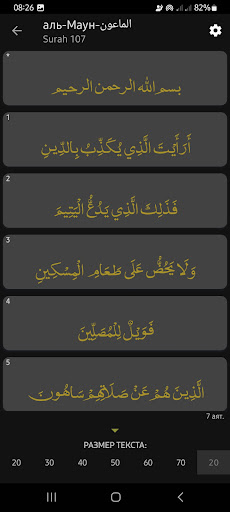 08:26
82%
аль-Маун-الماعون
Surah 107
*
بسم الله الرحمن الرحيم
1
أَرَأَيْتَ الَّذِي يُكَذِّبُ بِالدِّينِ
2
فَذَٰلِكَ الَّذِي يَدُعُّ الْيَتِيمَ
3
وَلَا يَحُضُّ عَلَىٰ طَعَامِ الْمِسْكِينِ
4
فَوَيْلٌ لِّلْمُصَلِّينَ
5
الَّذِينَ هُمْ عَن صَلَاتِهِمْ سَاهُونَ
7 аят.
РАЗМЕР ТЕКСТА:
20 30 40 50 60 70 20